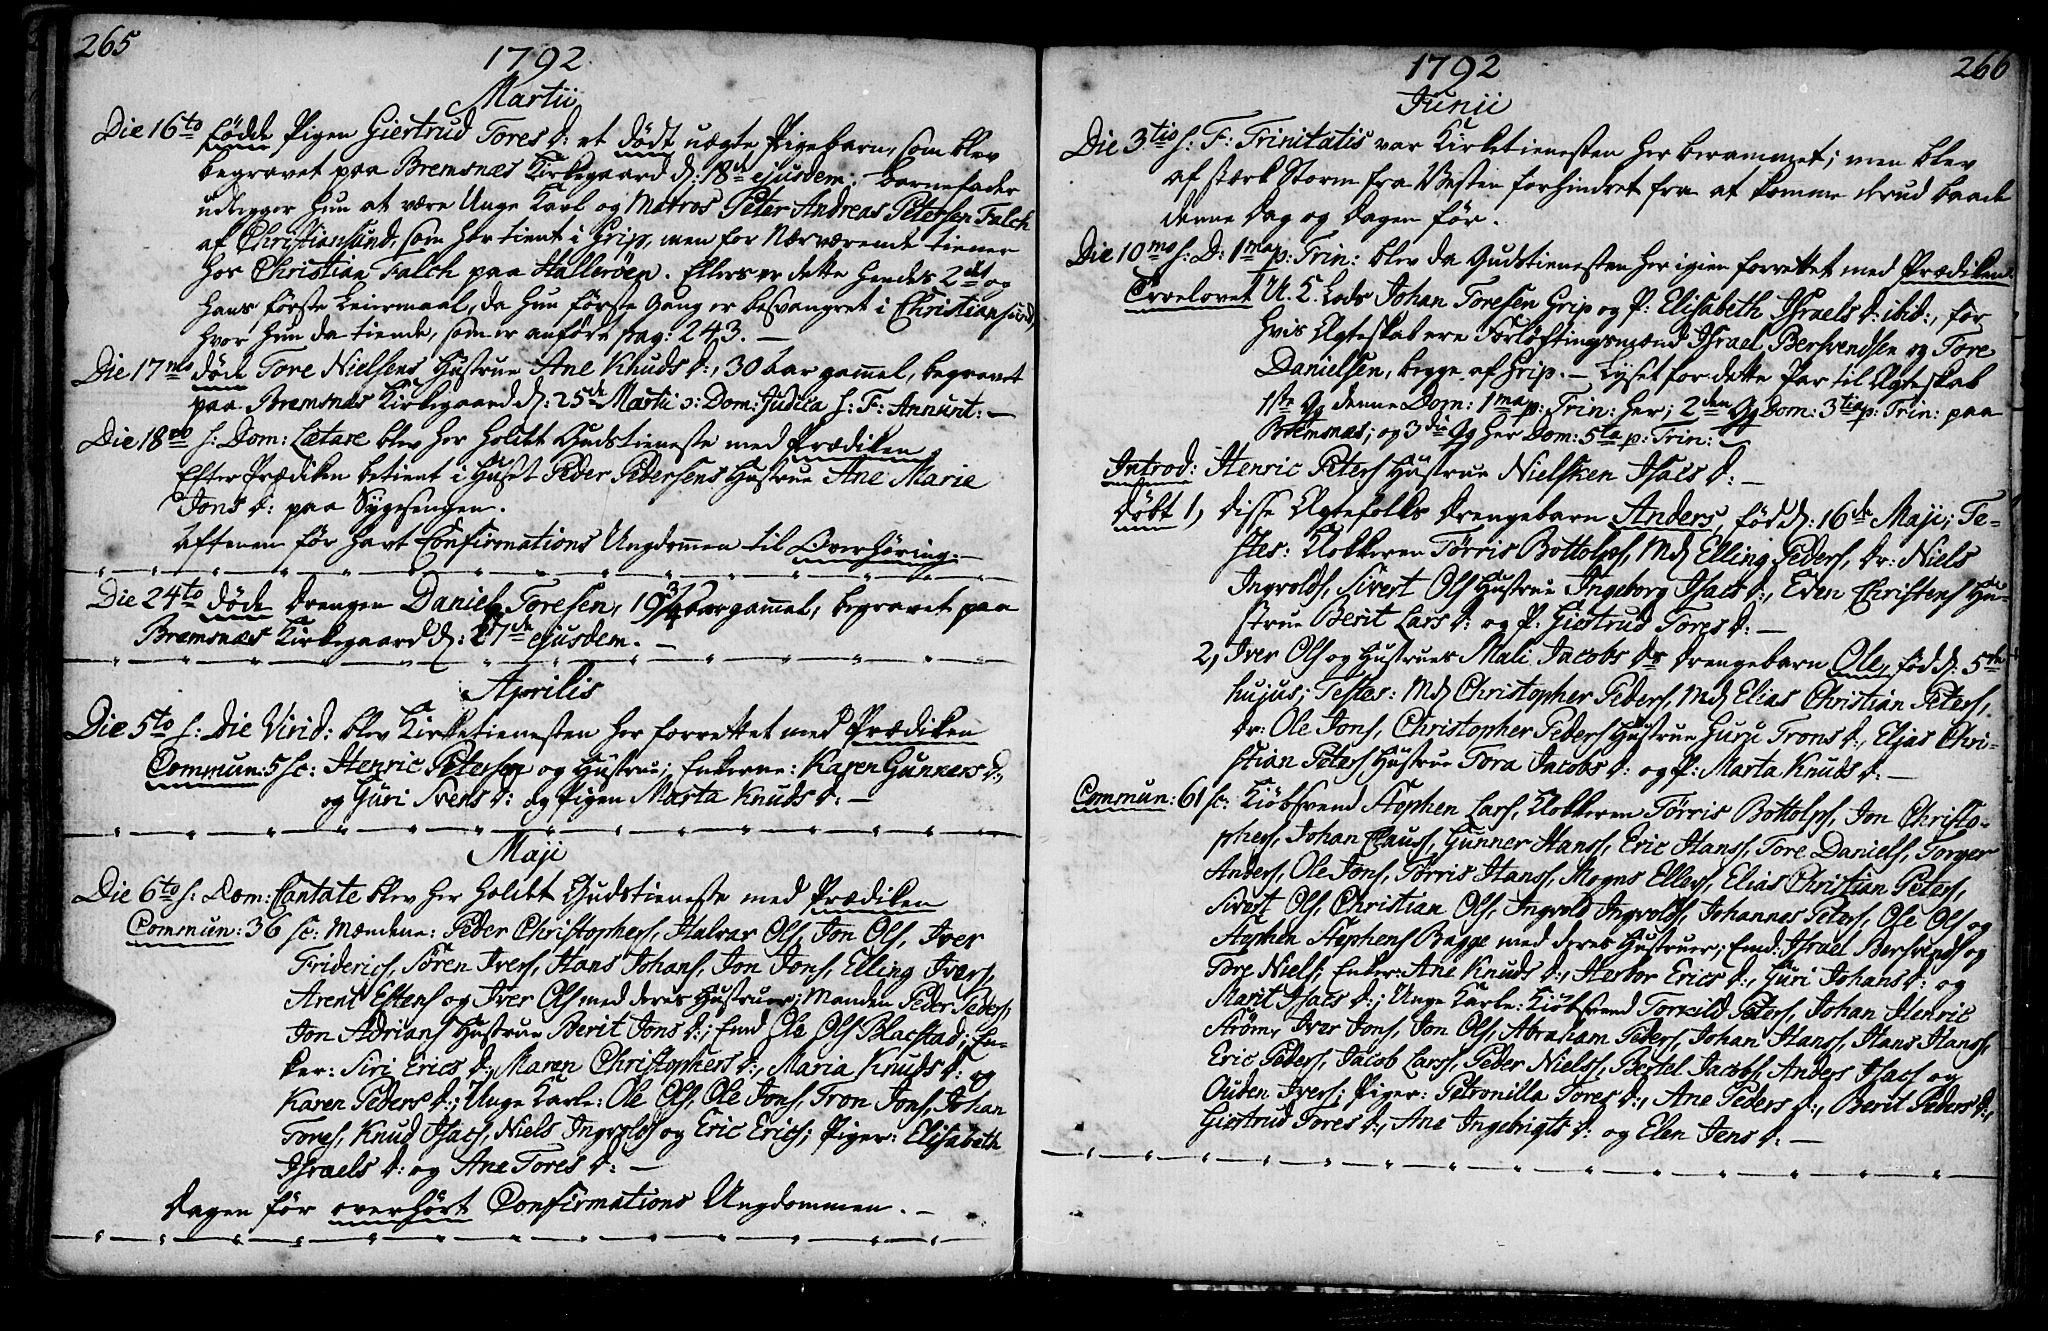 265
1792
Martii
Die 16to fødde Pigen Giertrud Tores D: et dødt uægte Pigebarn, som blev
begravet paa Bremsnæs Kirkegaard d: 18de ejusdem. Barnefader
udlegger hun at være Unge Karl og Matros Peter Andreas Petersen Falch
af Christiansund, som har tient i Grip, men for Nærværende tiener
hos Christian Falch paa Hallerøen. Ellers er dette hendes 2det og
hans første Leiermaal, da hun første Gang er besvangret i Christiansund,
hvor hun da tiente, som er anført pag: 243. —
Die 17mo døde Tore Nielsens Hustrue Ane Knuds D:, 30 Aar gammel, begravet
paa Bremsnæs Kirkegaard d: 25de Martii o: Dom: Judica s: F: Annunt: —
Die 18vo s: Dom: Lætare blev her holdt Gudstieneste med Prædiken
Efter Prædiken betient i Huset Peder Pedersens Hustrue Ane Marie
Jons D: paa Sygesengen.
Aftenen før havt Confirmations Ungdommen til Overhøring. —
Die 24to døde Drengen Daniel Toresen, 19 3/4 Aar gammel, begravet paa
Bremsnæs Kirkegaard d: 27de ejusdem. —
Aprilis
Die 5to s: Die Virid: blev Kirketienesten her forrettet med Prædiken
Commun: 5 sc: Henric Petersen og Hustrue; Enkerne: Karen Gunners D:,
og Guri Svens D: og Pigen Marta Knuds D: —
Maji
Die 6to s: Dom: Cantate blev her holdt Gudstieneste med Prædiken
Commun: 36 sc: Mændene: Peder Christophers, Halvar Ols, Jon Ols, Iver
Friderics, Sören Ivers, Hans Johans, Jon Jons, Elling Ivers,
Arent Estens og Iver Ols med deres Hustruer; Manden Peder Peders,
Jon Adrians Hustrue Berit Jons D:; Enkm: Ole Ols Blacstad; En-
ker: Siri Erics D:, Maren Christophers D:, Maria Knuds D: og
Karen Peders D:; Unge Karle: Ole Ols, Ole Jons, Tron Jons, Johan
Tores, Knud Isacs, Niels Ingvolds og Eric Erics; Piger: Elisabeth
Israels D: og Ane Tores D: —
Dagen før overhørt Confirmations Ungdommen. —
1792
266
Junii
Die 3tio s: F: Trinitatis var Kirketienesten her berammet; men blev
af stærk Storm fra Vesten forhindret fra at komme derud baade
denne Dag og Dagen før.
Die 10mo s: D: 1ma p: Trin: blev da Gudstienesten her igien forrettet med Prædiken.
Troelovet U. K. Lods Johan Toresen Grip og P: Elisabeth Israels D: ibid:, for
hvis Ægteskab ere Forløftingsmænd Israel Bersvendsen og Tore
Danielsen, begge af Grip. — Lyset for dette Par til Ægteskab
1ste Gg denne Dom: 1ma p: Trin: her; 2den Gg Dom: 3tia p: Trin: paa
Bremsnæs; og 3die Gg her Dom: 5ta p: Trin: —
Introd: Henric Peters Hustrue Nielsken Isacs D: —
Døbt 1, disse Ægtefolks Drengebarn Anders, fød d: 16de Maji; Te-
stes: Klokkeren Törris Bottolps, Md Elling Peders, Dr: Niels
Ingvolds, Sivert Ols Hustrue Ingeborg Isacs D:, Even Christens Hu-
strue Berit Lars D: og P: Giertrud Tores D: —
2, Iver Ols og Hustrues Mali Jacobs Ds Drengebarn Ole, fød d: 5te
hujus; Testes: Md Christopher Peders, Md Elias Christian Peters,
Dr: Ole Jons, Christopher Peders Hustrue Guru Trons D:, Elias Chri-
stian Peters Hustrue Tora Jacobs D: og P: Marta Knuds D: —
Commun: 61 sc: Kiöbsvend Stephen Lars, Klokkeren Törris Bottolps, Jon Christo-
phers, Johan Claus, Gunner Hans, Eric Hans, Tore Daniels, Torger
Anders, Ole Jons, Törris Hans, Mogns Ellers, Elias Christian Peters,
Sivert Ols, Christian Ols, Ingvold Ingvolds, Johannes Peters, Ole Ols og
Stephen Stephens Bagge med deres Hustruer; Enkm: Israel Bersvends og
Tore Niels; Enker: Ane Knuds D:, Herbor Erics D:, Guri Johans D: og
Marit Isacs D:; Unge Karle: Kiöbsvend Torkild Peters, Johan Henric
Ström, Iver Jons, Jon Ols, Abraham Peders, Johan Hans, Hans Hans,
Eric Peders, Jacob Lars, Peder Niels, Bertel Jacobs, Anders Isacs og
Ouden Ivers; Piger: Petronilla Tores D:, Ane Peders D:, Berit Peders D:,
Giertrud Tores D:, Ane Ingebrigts D: og Elen Jens D: —